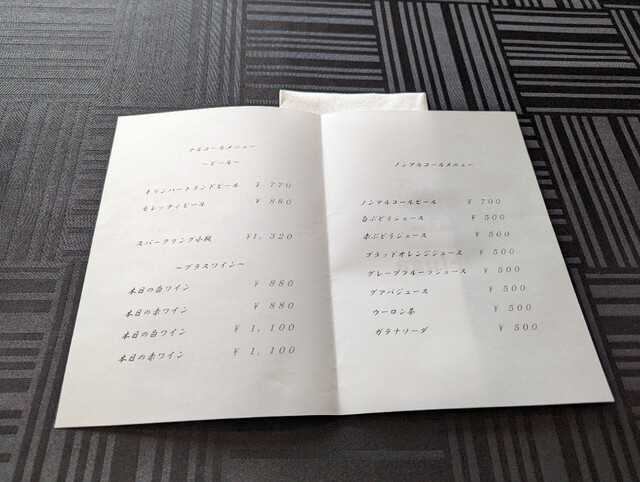 アルコールメニュー
～ビール～
キリンハートランドビール ¥ 770
モレッティビール ¥ 880
スパークリング小瓶 ¥1,320
～グラスワイン～
本日の白ワイン ¥ 880
本日の赤ワイン ¥ 880
本日の白ワイン ¥ 1,100
本日の赤ワイン ¥ 1,100
ノンアルコールメニュー
ノンアルコールビール ¥ 700
白ぶどうジュース ¥ 500
赤ぶどうジュース ¥ 500
ブラッドオレンジジュース ¥ 500
グレープフルーツジュース ¥ 500
グアバジュース ¥ 500
ウーロン茶 ¥ 500
ガラナソーダ ¥ 500